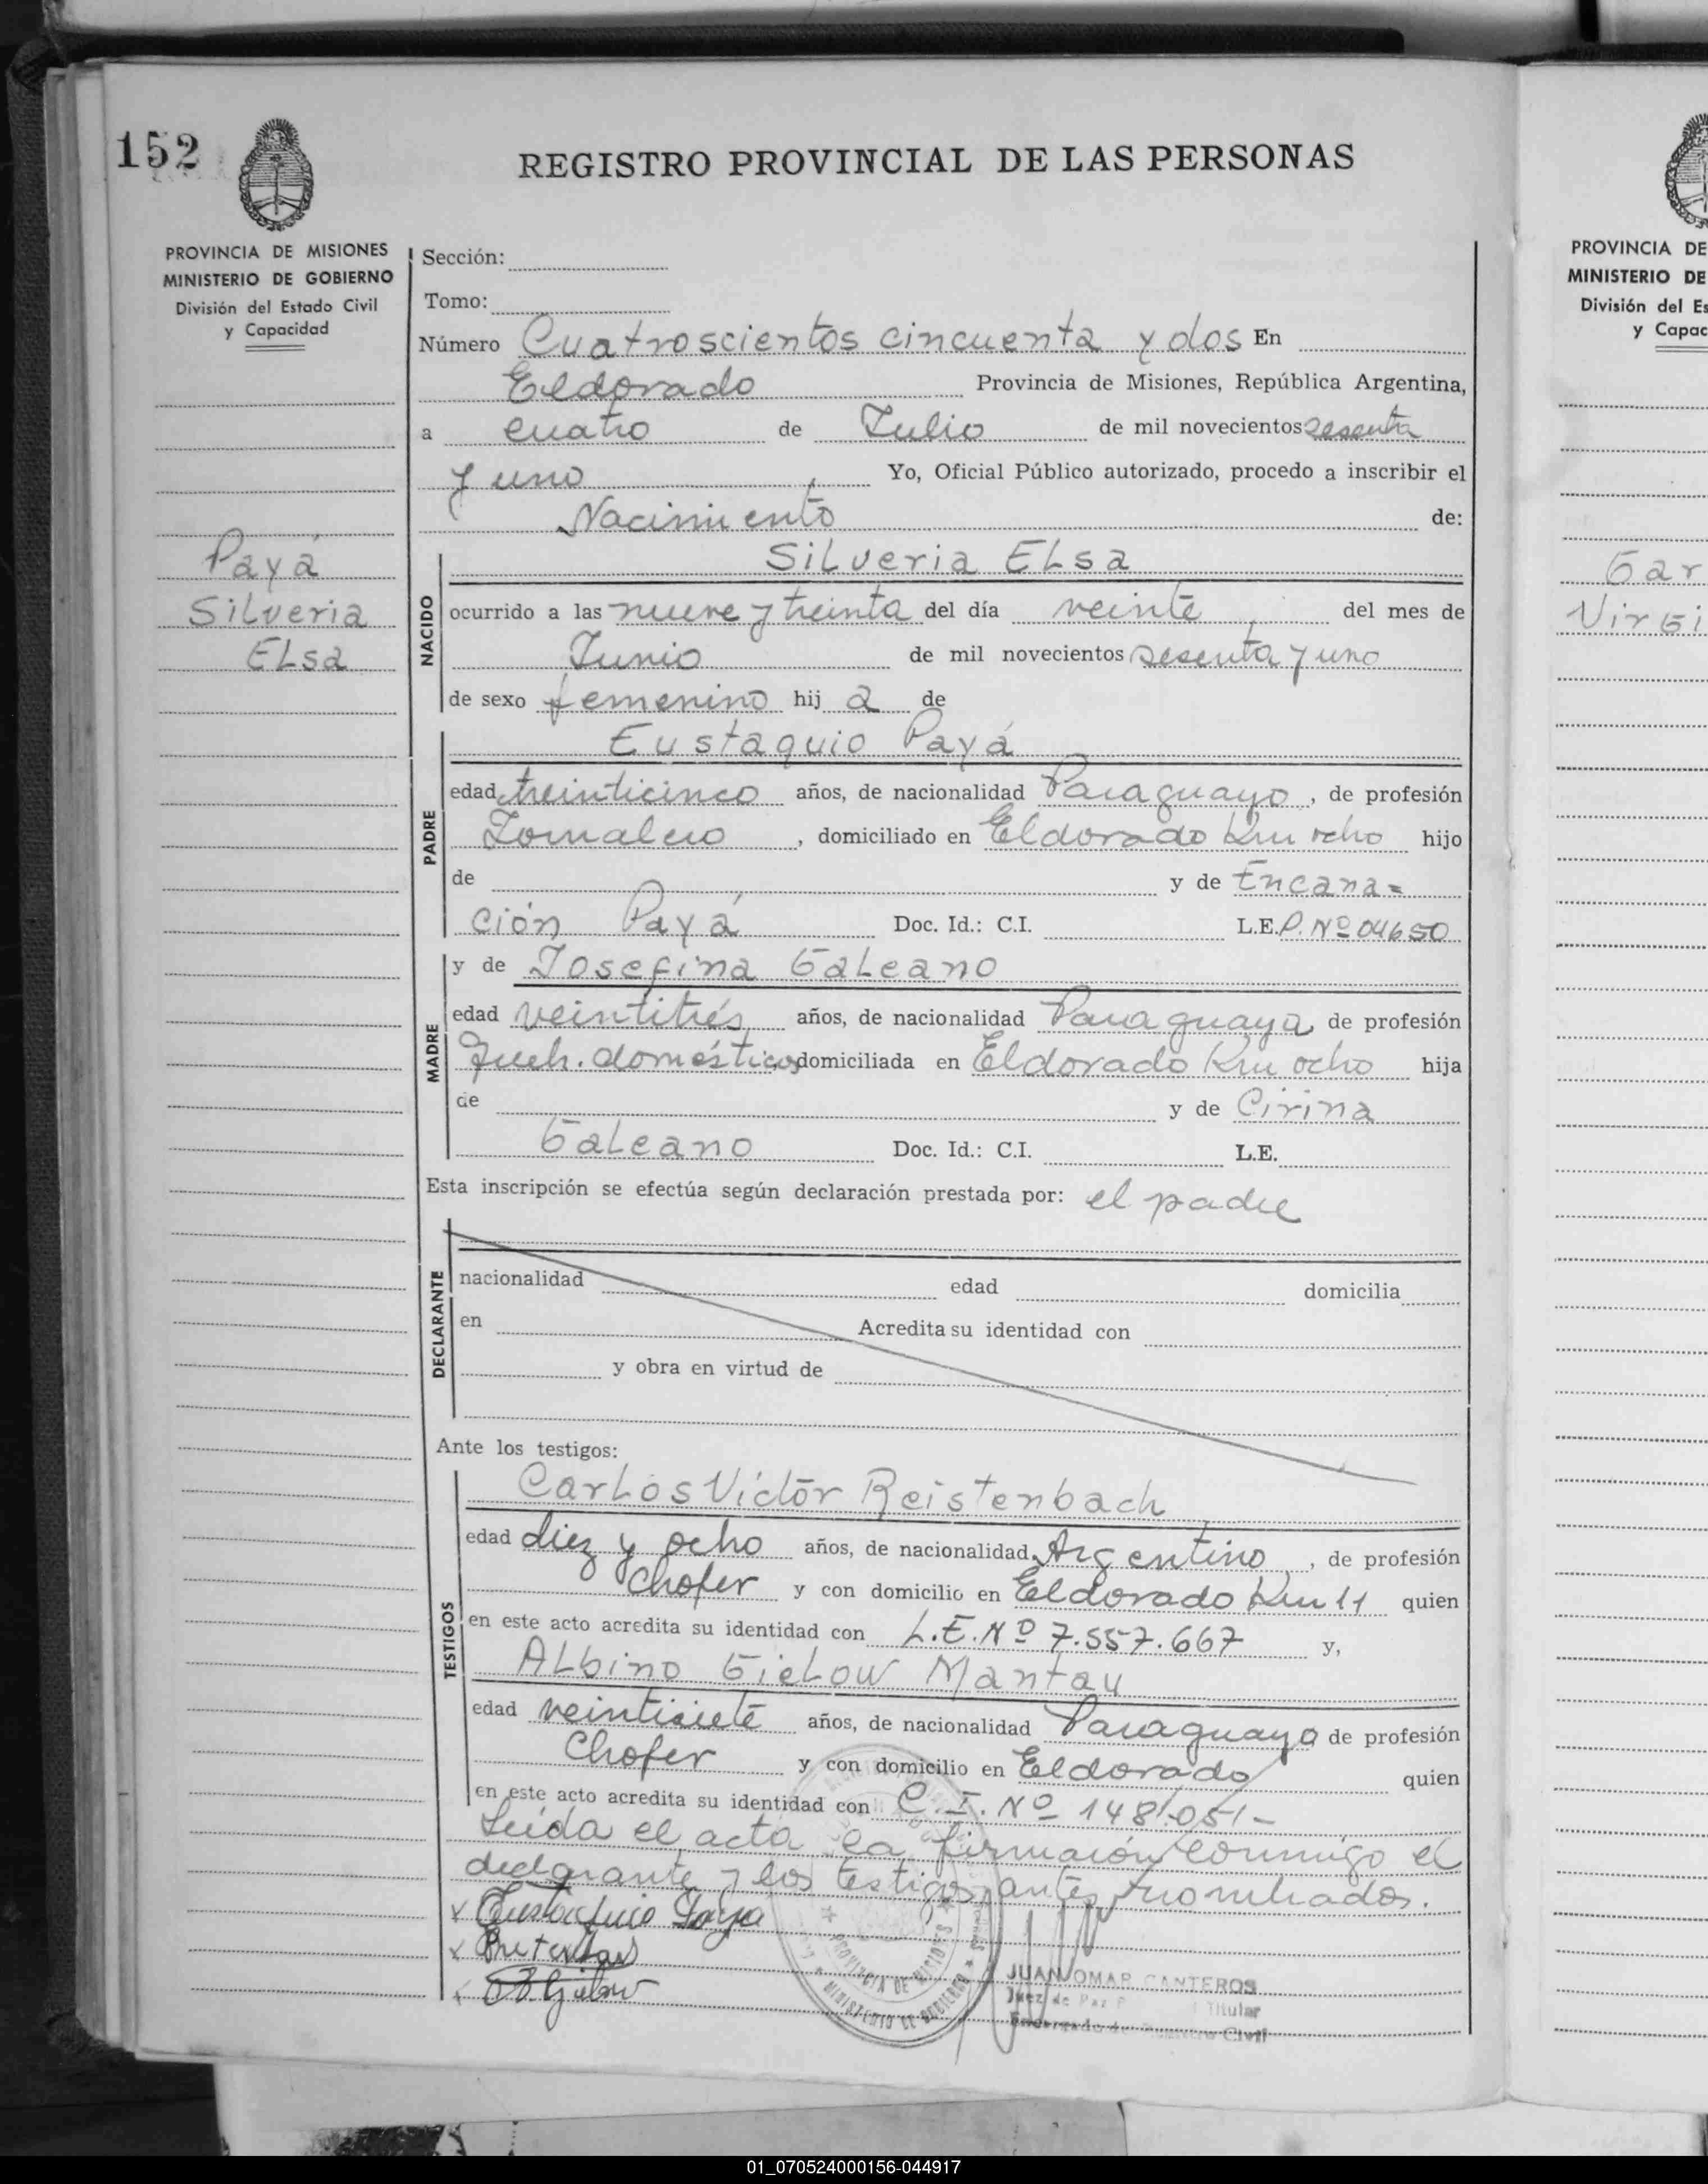 152
REGISTRO PROVINCIAL DE LAS PERSONAS
PROVINCIA DE MISIONES
MINISTERIO DE GOBIERNO
División del Estado Civil
y Capacidad
Payá
Silveria
Elsa
Sección:
Tomo:
Número Cuatroscientos cincuenta y dos En
Eldorado Provincia de Misiones, República Argentina,
a cuatro de Julio de mil novecientos sesenta
y uno Yo, Oficial Público autorizado, procedo a inscribir el
Nacimiento de:
NACIDO
Silveria Elsa
ocurrido a las nueve y treinta del día veinte del mes de
Junio de mil novecientos sesenta y uno
de sexo femenino hij a de
PADRE
Eustaquio Payá
edad treinticinco años, de nacionalidad Paraguayo, de profesión
Jornalero, domiciliado en Eldorado Km ocho hijo
de y de Encana=
ción Payá Doc. Id.: C.I. L.E. P. Nº 04650
MADRE
y de Josefina Galeano
edad veintitrés años, de nacionalidad Paraguaya de profesión
Queh. domésticos domiciliada en Eldorado Km ocho hija
de y de Cirina
Galeano Doc. Id.: C.I. L.E.
Esta inscripción se efectúa según declaración prestada por: el padre
DECLARANTE
nacionalidad edad domicilia
en Acredita su identidad con
y obra en virtud de
Ante los testigos:
TESTIGOS
Carlos Víctor Reistenbach
edad diez y ocho años, de nacionalidad Argentino, de profesión
Chofer y con domicilio en Eldorado Km 11 quien
en este acto acredita su identidad con L.E. Nº 7.557.667 y,
Albino Gielow Mantau
edad veintisiete años, de nacionalidad Paraguayo de profesión
Chofer y con domicilio en Eldorado quien
en este acto acredita su identidad con C.I. Nº 148.051-
Leída el acta la firmaron conmigo el
declarante y los testigos antes nombrados.
Eustaquio Paya
PROVINCIA DE MISIONES
MINISTERIO DE GOBIERNO
JUAN OMAR CANTEROS
Juez de Paz Titular
Encargado de Registro Civil
PROVINCIA DE
MINISTERIO DE
División del Es
y Capac
Gar
Virgi
01_070524000156-044917